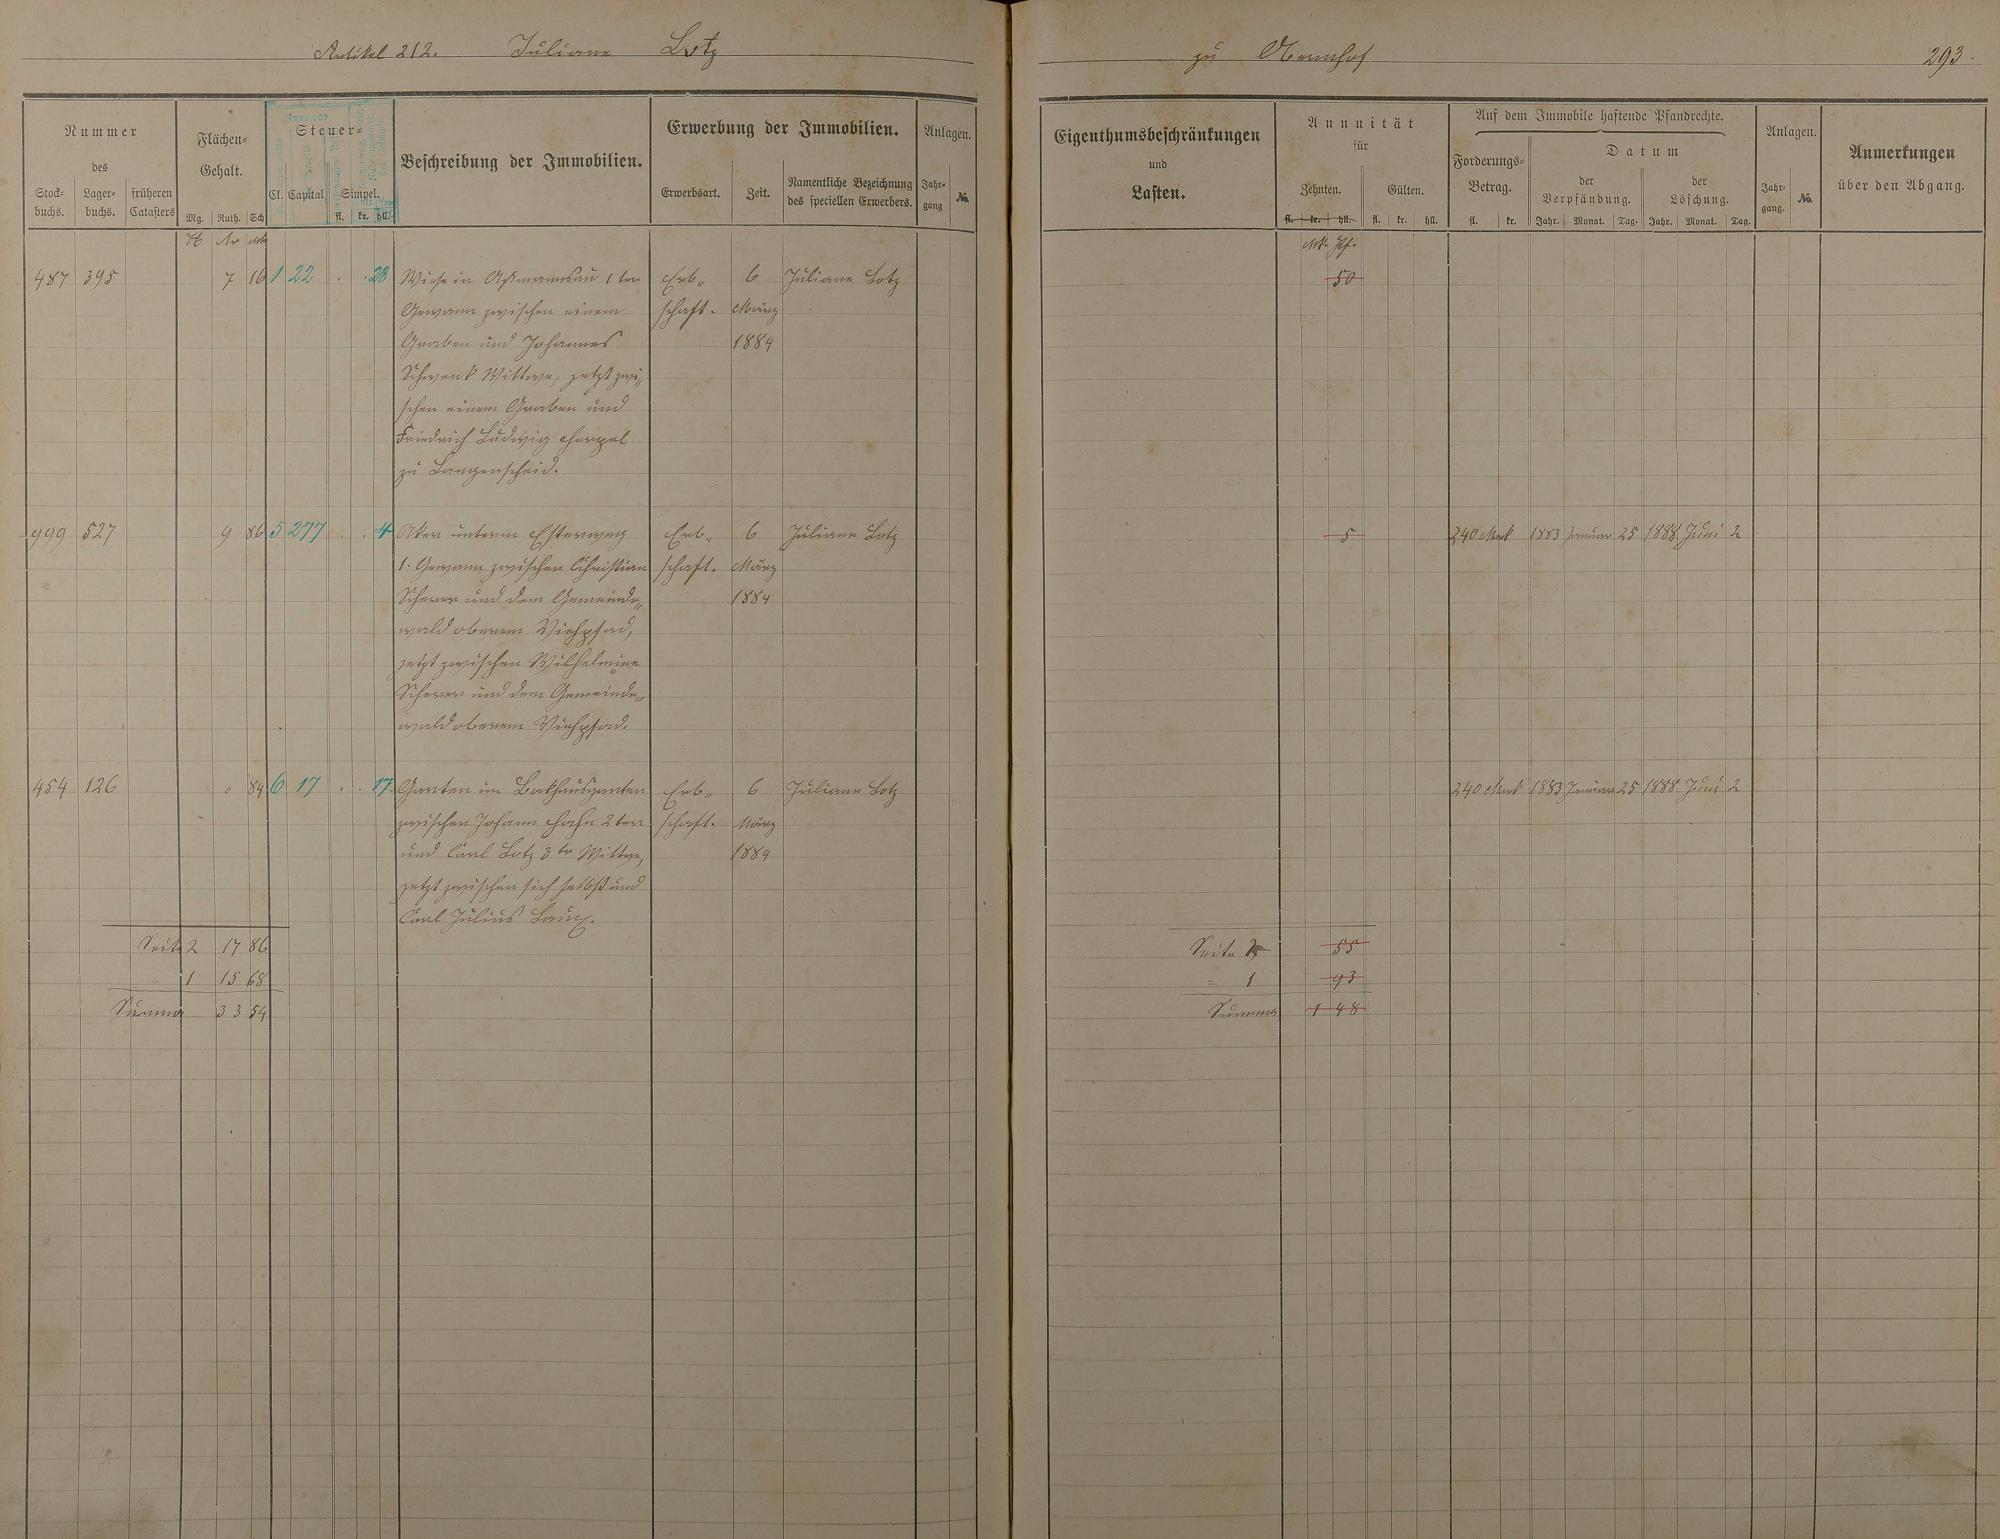 Artikel 212. Juliane Lotz
zu Obernhof
293.
Nummer
des
Stock-
buchs.
Lager-
buchs.
früheren
Catasters
Flächen-
Gehalt.
Mg. Ruth. Sch
Steuer-
Cl. Capital Simpel.
fl. kr. hll.
Beschreibung der Immobilien.
Erwerbung der Immobilien.
Erwerbsart. Zeit.
Namentliche Bezeichnung
des speciellen Erwerbers.
Anlagen.
Jahr-
gang
No.
Eigenthumsbeschränkungen
und
Lasten.
Annuität
für
Zehnten. Gülten.
fl. kr. hll. fl. kr. hll.
Auf dem Immobile haftende Pfandrechte.
Forderungs-
Betrag.
fl. kr.
Datum
der
Verpfändung.
der
Löschung.
Jahr. Monat. Tag. Jahr. Monat. Tag.
Anlagen.
Jahr-
gang.
No.
Anmerkungen
über den Abgang.
H Ar
Mk. Pf.
487 395 7 16 1 22 . . 28 Wiese in Aßmannsau 1ter Erb- 6 Juliane Lotz 50
Gewann zwischen einem schaft. März
Graben und Johannes 1884
Schwenk Wittwe, jetzt zwi-
schen einem Graben und
Friedrich Ludwig
zu Langenscheid.
999 527 9 86 5 277 . . 4 Aker unterm Esterweg Erb- 6 Juliane Lotz 5 240 Mark 1883 Januar 25 1888 Juni 2
1. Gewann zwischen Christian schaft. März
Scherer und dem Gemeinde- 1884
wald oberem Viehpfad,
jetzt zwischen Wilhelmine
Scherer und dem Gemeinde-
wald oberem Viehpfad.
454 126 0 84 6 17 . . 17 Garten im Bakhausgarten Erb- 6 Juliane Lotz 240 Mark 1883 Januar 25 1888 Juni 2
zwischen Johann Hahn 2ter schaft. März
und Carl Lotz 3tr Wittwe, 1884
jetzt zwischen sich selbst und
Carl Julius Laux.
Seite 2 17 86
" 1 15 68
Summa 33 54
Seite 2 55
" 1 93
Summa 1 48